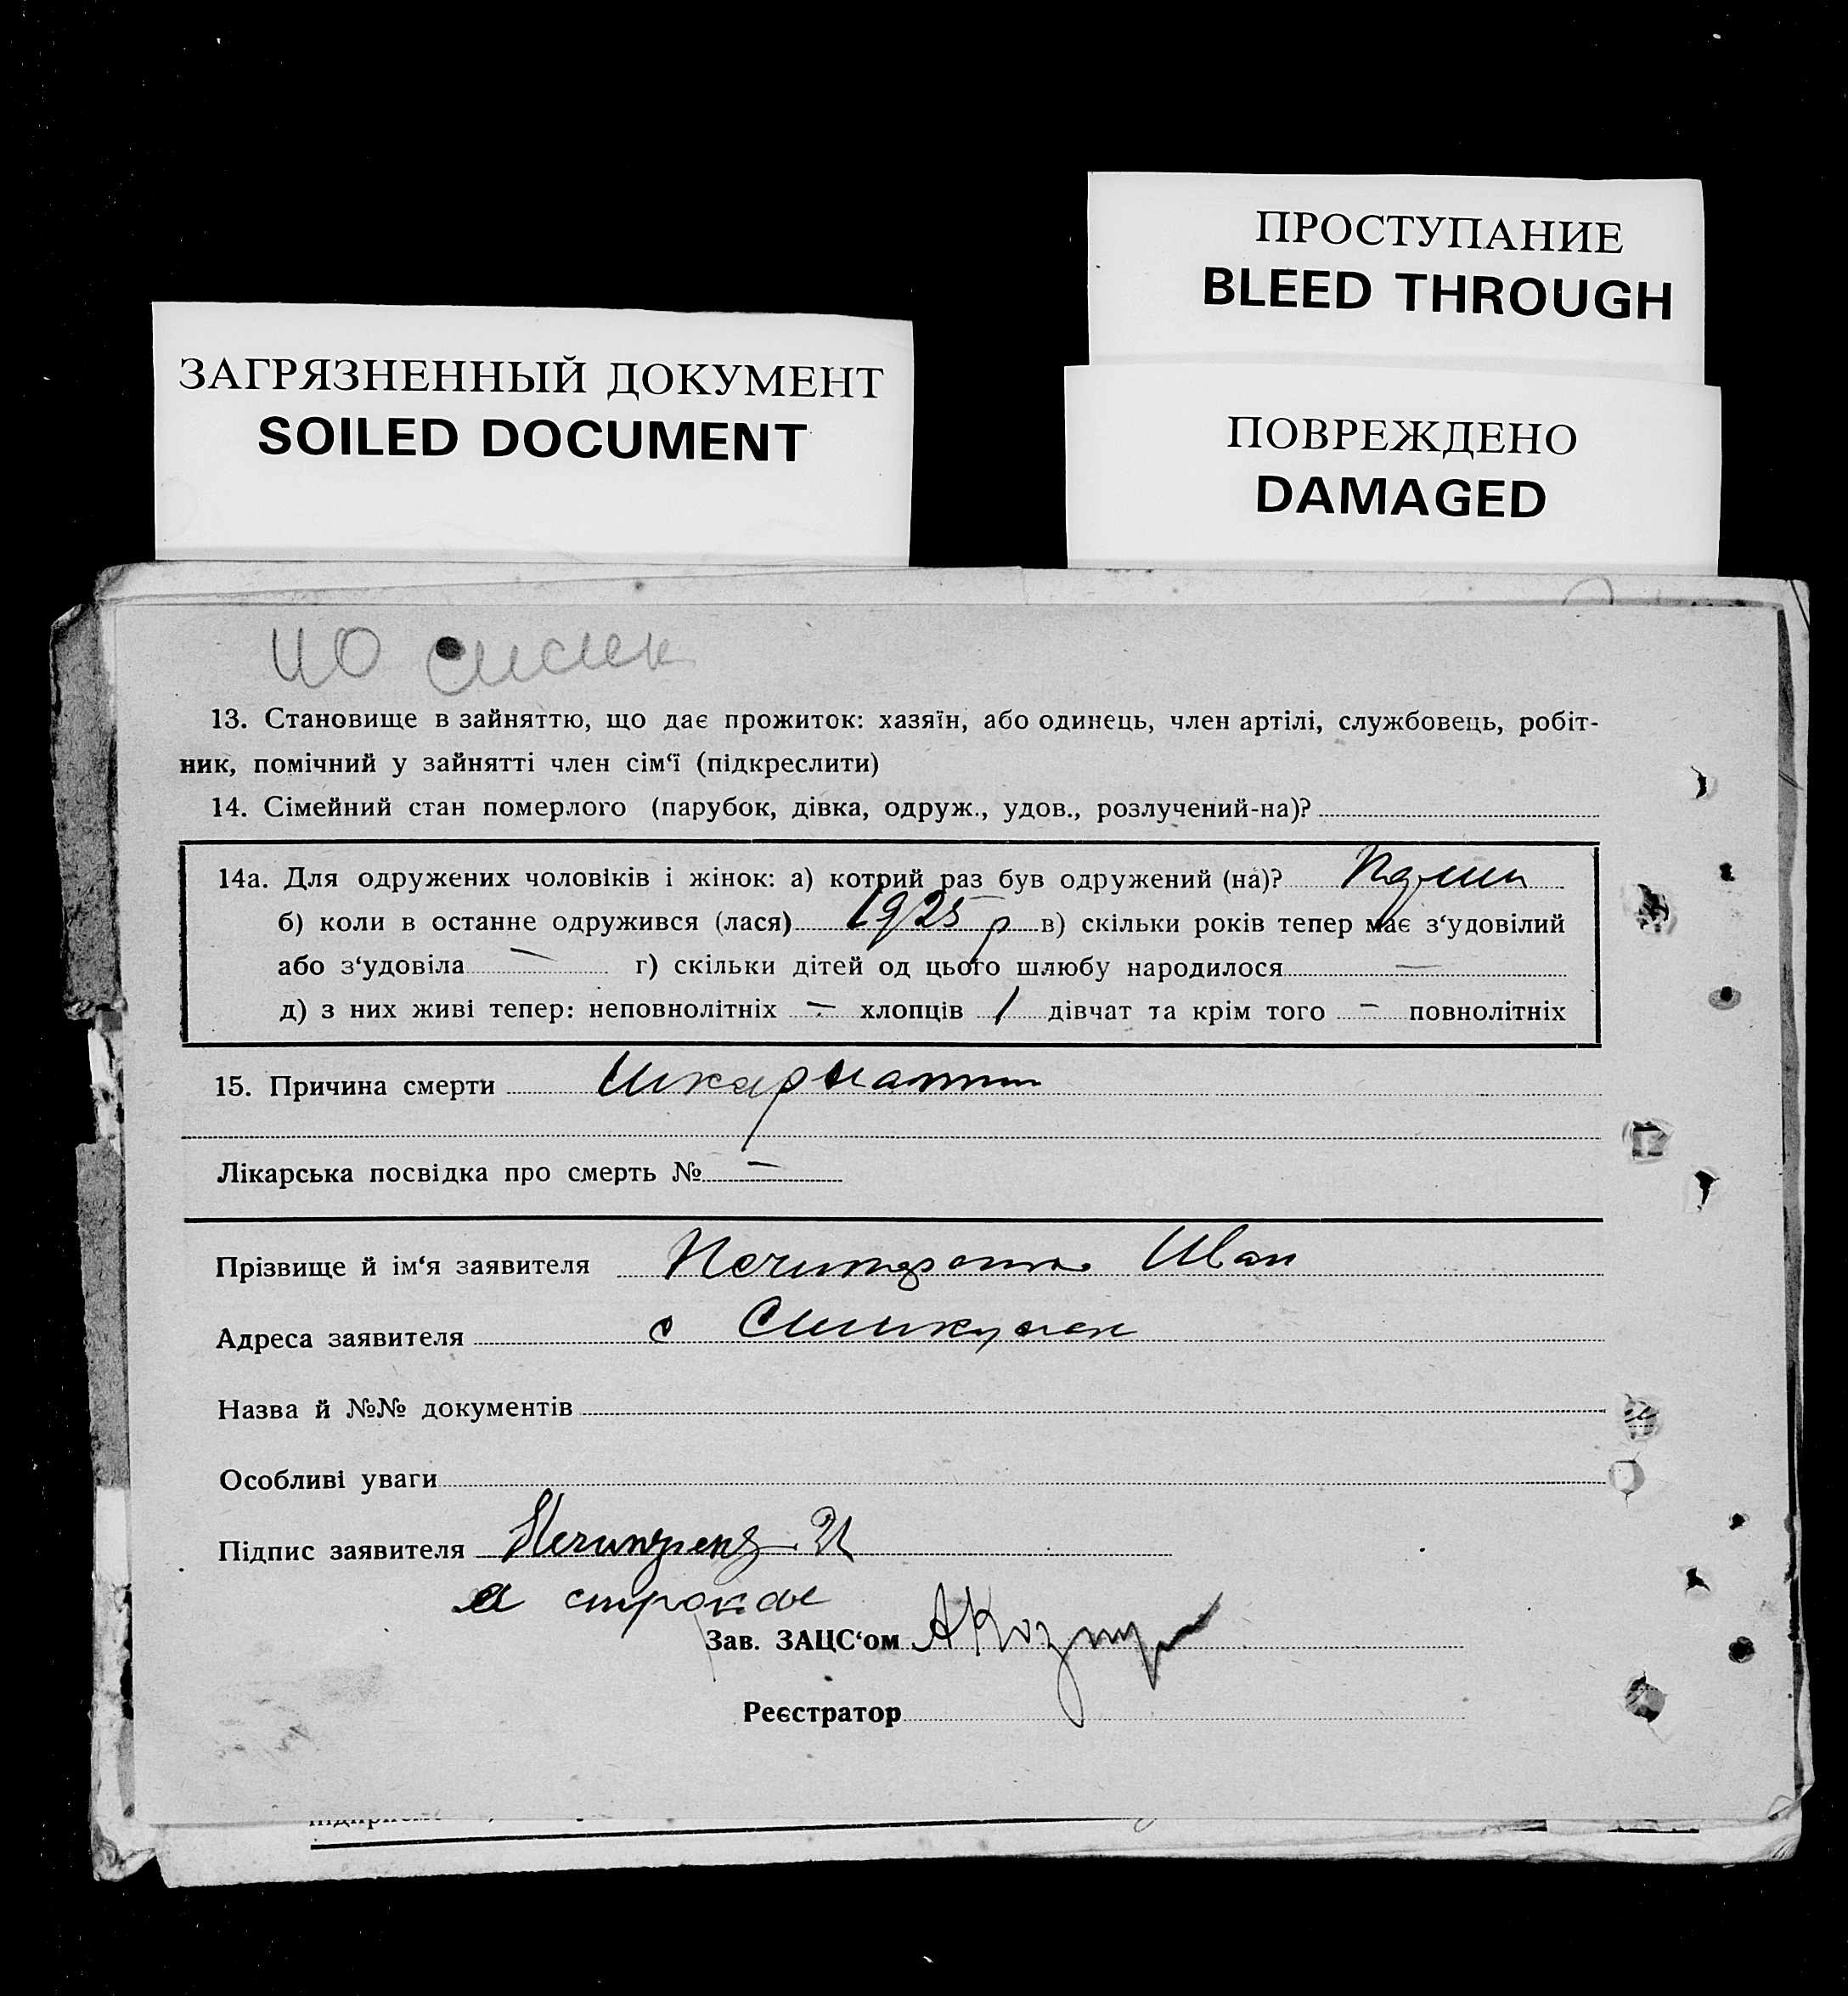 ПРОСТУПАНИЕ
BLEED THROUGH
ЗАГРЯЗНЕННЫЙ ДОКУМЕНТ
SOILED DOCUMENT
ПОВРЕЖДЕНО
DAMAGED
13. Становище в зайняттю, що дає прожиток: хазяїн, або одинець, член артілі, службовець, робіт-
ник, помічний у зайнятті член сім‘ї (підкреслити)
14. Сімейний стан померлого (парубок, дівка, одруж., удов., розлучений-на)?
14а. Для одружених чоловіків і жінок: а) котрий раз був одружений (на)?
б) коли в останне одружився (лася) 1925 р в) скільки років тепер має з‘удовілий
або з‘удовіла — г) скільки дітей од цього шлюбу народилося —
д) з них живі тепер: неповнолітніх — хлопців 1 дівчат та крім того — повнолітніх
15. Причина смерти Шкарлатин
Лікарська посвідка про смерть № —
Прізвище й ім‘я заявителя Іван
Адреса заявителя с
Назва й №№ документів
Особливі уваги
Підпис заявителя
Зав. ЗАЦС‘ом
Реєстратор